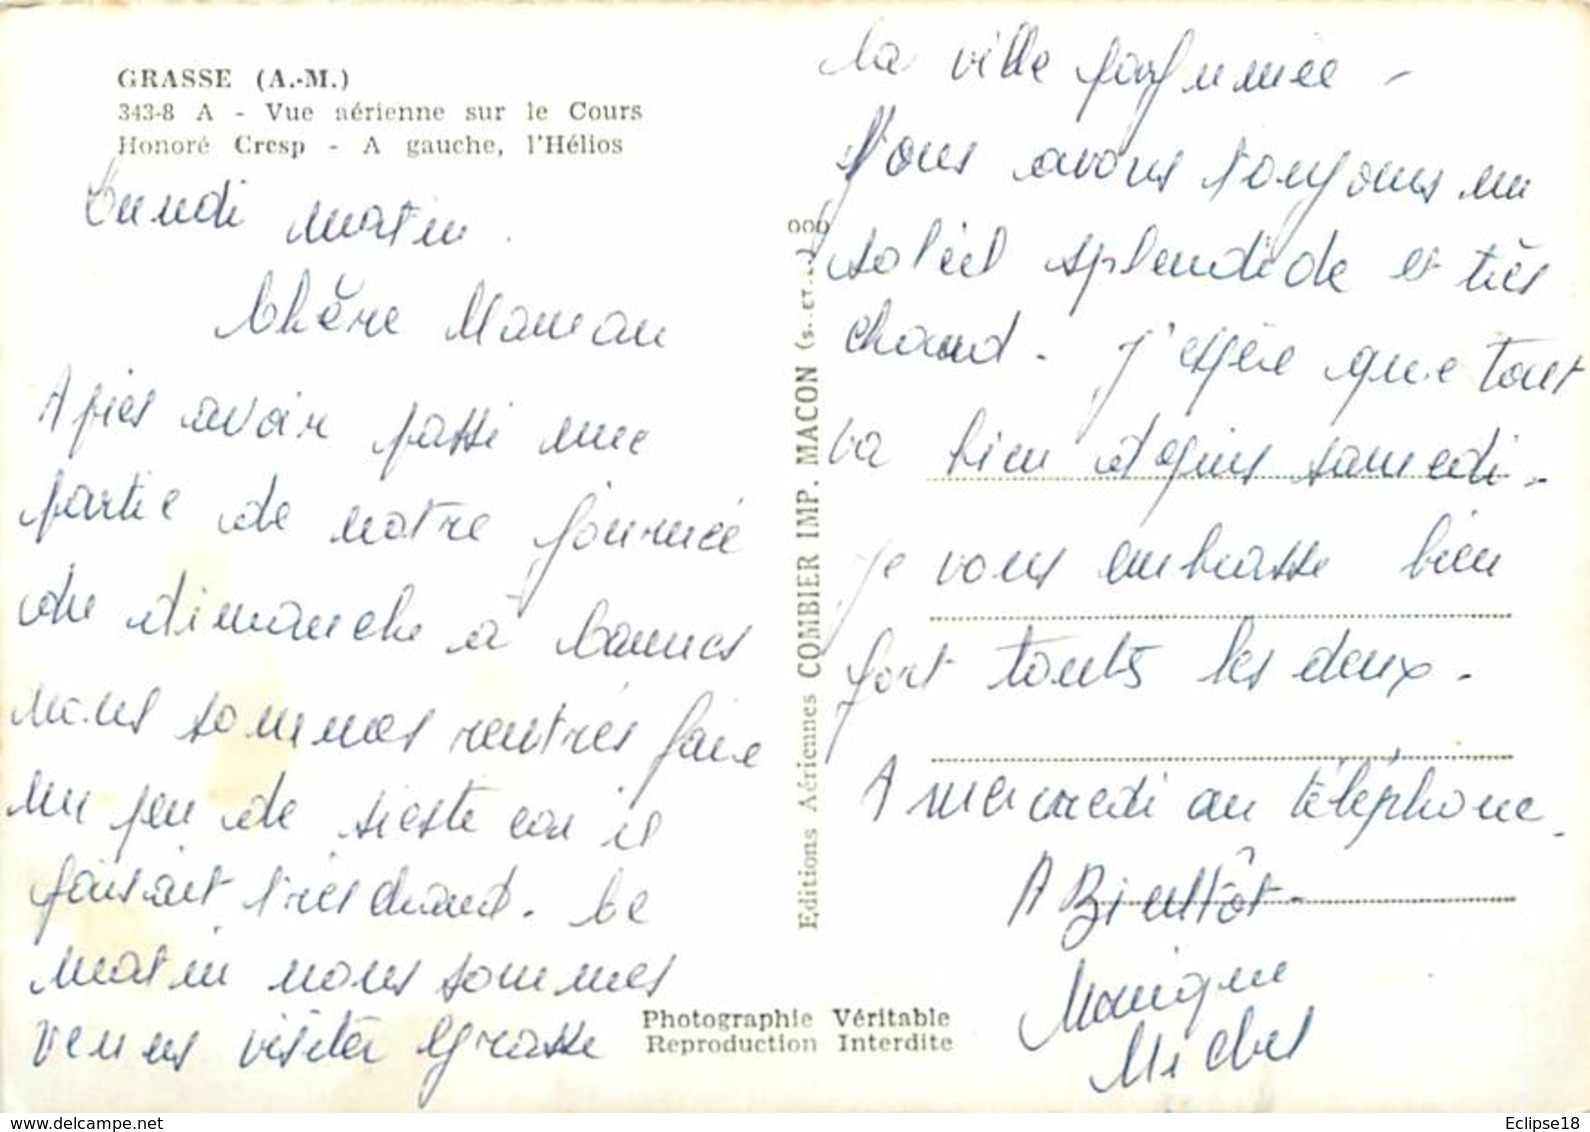 GRASSE (A.-M.)
343-8 A - Vue aérienne sur le Cours
Honoré Cresp - A gauche, l'Hélios
Lundi matin.
Chère Maman
Après avoir passé une
partie de notre journée
du dimanche à Cannes
nous sommes rentrés faire
un peu de sieste car il
faisait très chaud. Ce
matin nous sommes
venus visiter Grasse
la ville parfumée -
Nous avons toujours un
soleil splendide et très
chaud. J'espère que tout
va bien depuis samedi.
Je vous embrasse bien
fort toutes les deux.
A mercredi au téléphone.
A Bientôt.
Monique
Michel
Editions Aériennes COMBIER IMP. MACON (S.-ET-L.) OOO
Photographie Véritable
Reproduction Interdite
Eclipse18